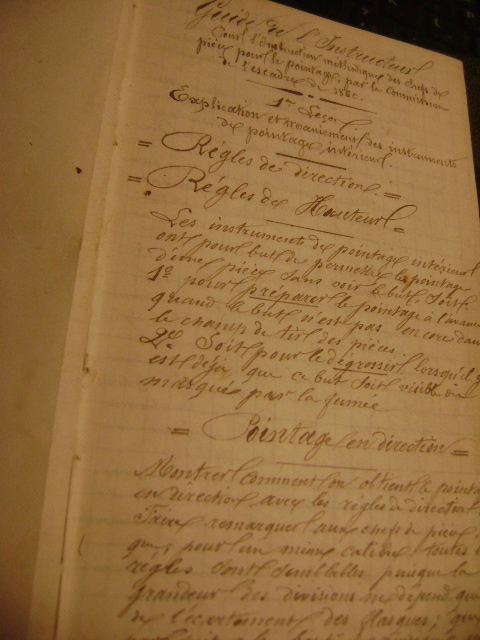 Guide de l'Instructeur
Cours d'Instruction méthodique des chefs de
pièce pour le pointage, par la Commission
de l'escadre de 1880.
1re Leçon
Explication et maniement des instruments
de pointage intérieur.
= Règles de direction. =
= Règles de Hauteur =
Les instruments de pointage intérieur
ont pour but de permettre le pointage
d'une pièce sans voir le but. Soit:
1º pour préparer le pointage à l'avance
quand le but n'est pas encore dans
le champ de tir des pièces.
2º Soit pour le dégrossir lorsqu'il y
est déjà, que ce but soit visible ou
masqué par la fumée
= Pointage en direction =
Montrer comment on obtient le pointage
en direction avec les règles de direction
Faire remarquer aux chefs de pièce,
que, pour un même calibre toutes les
règles sont semblables puisque la
grandeur des divisions ne dépend que
de l'écartement des flasques; que